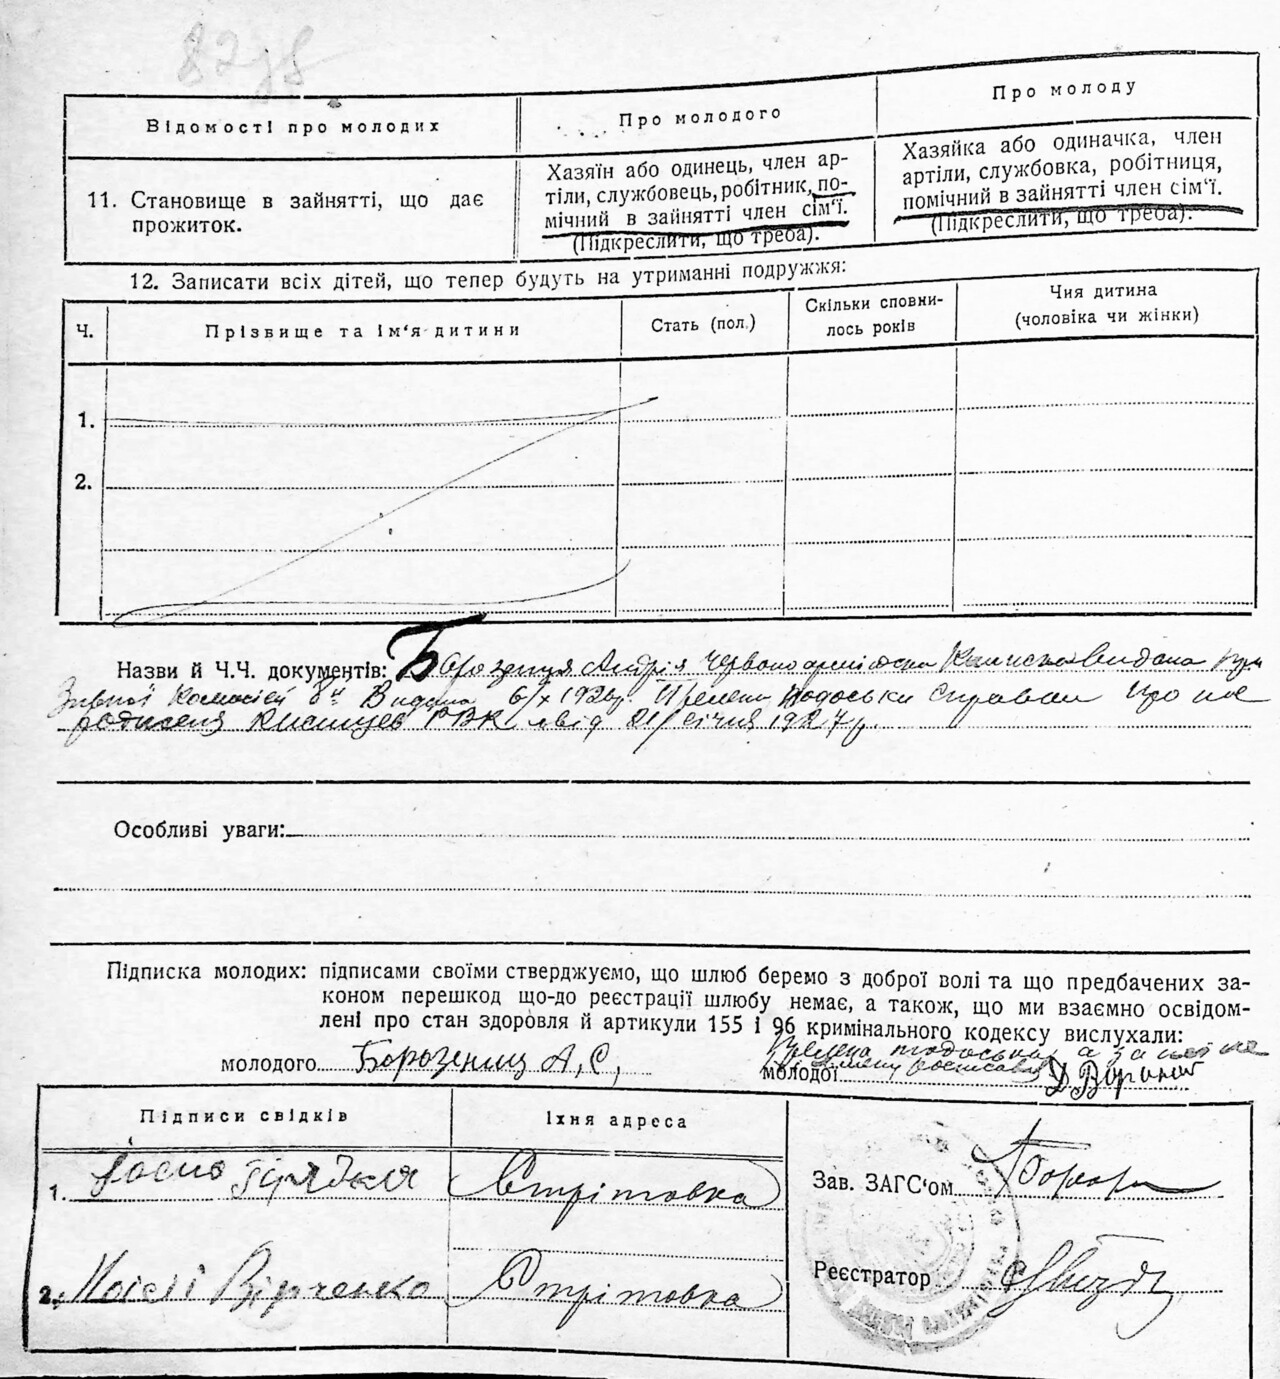 Відомості про молодих
Про молодого
Про молоду
11. Становище в зайнятті, що дає
прожиток.
Хазяїн або одинець, член ар-
тіли, службовець, робітник, по-
мічний в зайнятті член сім‘ї.
(Підкреслити, що треба).
Хазяйка або одиначка, член
артіли, службовка, робітниця,
помічний в зайнятті член сім‘ї.
(Підкреслити, що треба).
12. Записати всіх дітей, що тепер будуть на утриманні подружжя:
Ч.
Прізвище та ім‘я дитини
Стать (пол.)
Скільки сповни-
лось років
Чия дитина
(чоловіка чи жінки)
1.
2.
Назви й Ч.Ч. документів: Борозенця Андрія Червоноармієска Книжка Видана
6/X 192 Тодоськи Справки Про
РВК від 21/січня 1927 р.
Особливі уваги:
Підписка молодих: підписами своїми стверджуємо, що шлюб беремо з доброї волі та що предбачених за-
коном перешкод що-до реєстрації шлюбу немає, а також, що ми взаємно освідом-
лені про стан здоровля й артикули 155 і 96 кримінального кодексу вислухали:
молодого Борозенец А, С,
молодої тодоська а за
Підписи свідків
Їхня адреса
1.
Стрітовка
2. Мойсей Вірченко
Стрітовка
Зав. ЗАГС‘ом
Реєстратор